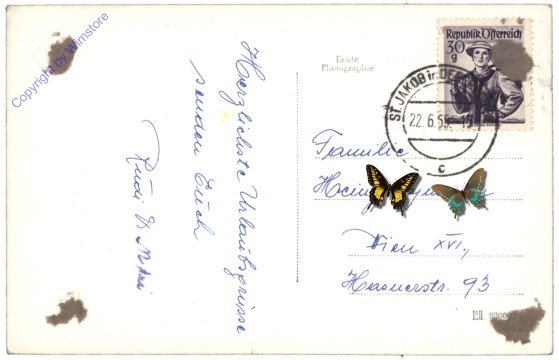 Copyright by Wimstore
Herzlichste Urlaubsgrüsse
senden Euch
Rudi
Echte
Photographie
Republik Österreich
30
g
ST. JAKOB in DE
22.6.55
c
Familie
Wien XVI.,
Hasnerstr. 93